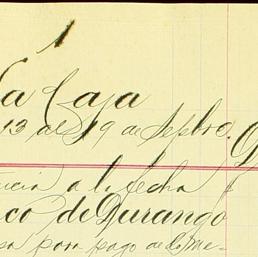 1
La Caja
13 al 19 de Sepbre.
encia a la fecha
nco de Durango
sa para pago de